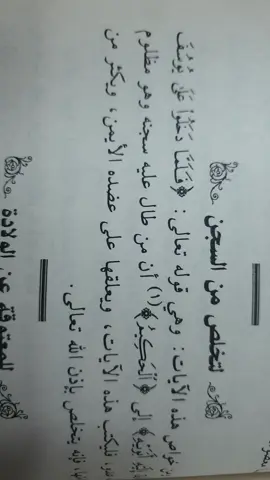 لتخلص من السجن
خواص هذه الآيات: وهي قوله تعالى: ﴿فَلَمَّا دَخَلُوا عَلَى يُوسُفَ
إلى ﴿الْحَكِيمُ﴾(١) أن من طال عليه سجنه وهو مظلوم
فليكتب هذه الآيات، ويعلقها على عضده الأيمن، ويكثر من
فإنه يتخلص بإذن الله تعالى.
عن الولادة